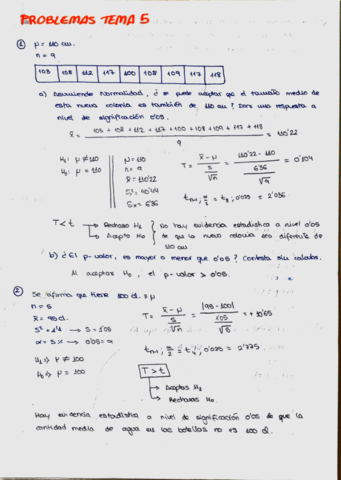 PROBLEMAS TEMA 5
① μ = 110 cm.
n = 9
103 108 112 117 100 108 109 117 118
a) Asumiendo Normalidad, ¿se puede aceptar que el tamaño medio de
esta nueva colonia es también de 110 cm? Dar una respuesta a
nivel de significación 0'05.
x̄ = 103 + 108 + 112 + 117 + 100 + 108 + 109 + 117 + 118 / 9 = 110'22
H₁: μ ≠ 110
H₀: μ = 110
μ = 110
n = 9
x̄ = 110'22
S² = 40'44
Sx = 6'36
T = x̄ - μ / S/√n = 110'22 - 110 / 6'36/√9 = 0'104
T < t
Rechazo H₁
Acepto H₀
No hay evidencia estadística a nivel 0'05
de que la nueva colonia sea diferente de
110 cm
b) ¿El p-valor, es mayor o menor que 0'05? Contesta sin calcular.
Al aceptar H₀, el p-valor > 0'05.
② Se afirma que tiene 100 cl.
n = 5
x̄ = 95 cl.
α = 5% → 0'05 = α
H₁ → μ ≠ 100
H₀ → μ = 100
T = x̄ - μ / S/√n = |95 - 100|
T > t
Aceptas H₁
Rechazas H₀
Hay evidencia estadística a nivel de significación 0'05 de que la
cantidad media de agua en las botellas no es 100 cl.